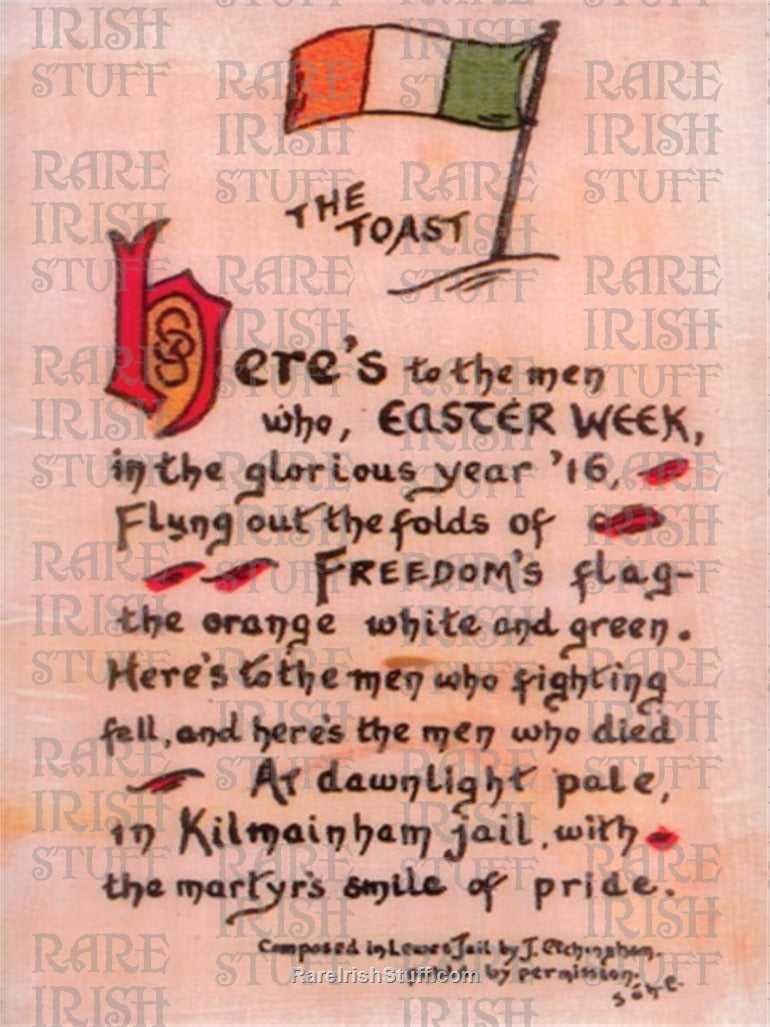 THE
TOAST
Here's to the men
who, EASTER WEEK,
in the glorious year '16,
Flung out the folds of
FREEDOM'S flag-
the orange white and green.
Here's to the men who fighting
fell, and here's the men who died
At dawnlight pale,
in Kilmainham jail, with
the martyr's smile of pride.
Composed in Lewes Jail by J. Etchingham.
by permission.
RareIrishStuff.com
RARE
IRISH
STUFF